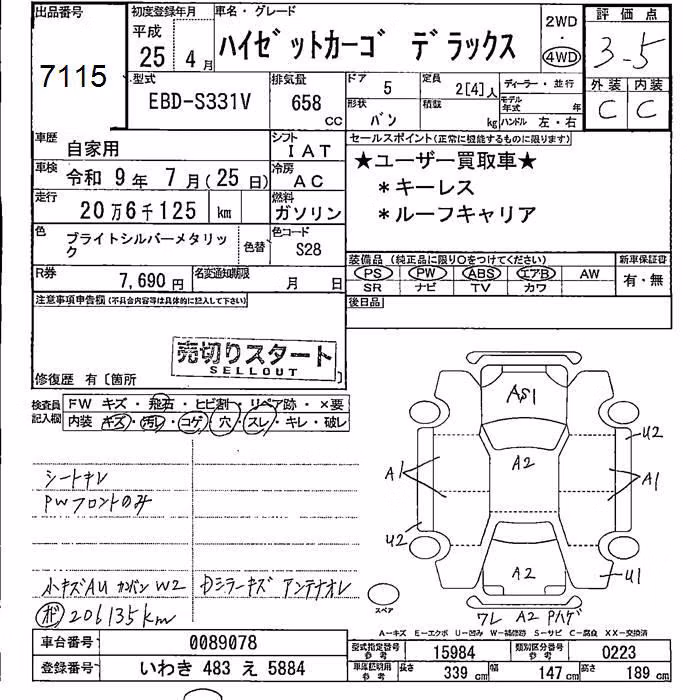 出品番号 初度登録年月 車名・グレード 2WD 評価点
7115 平成 25 4月 ハイゼットカーゴ デラックス 4WD 3.5
型式 排気量 ドア 5 定員 2[4]人 ディーラー・並行 外装 内装
EBD-S331V 658 cc 形状 バン 積載 kg モデル年式 年 ハンドル 左・右 C C
車歴 自家用 シフト IAT セールスポイント(正常に機能するものに限ります)
車検 令和 9年 7月(25日) 冷房 AC ★ユーザー買取車★
走行 20万6千125 km 燃料 ガソリン *キーレス
*ルーフキャリア
色 ブライトシルバーメタリック 色替 色コード S28
装備品 (純正品に限り○をつけてください) 新車保証書
PS PW ABS エアB AW 有・無
SR ナビ TV カワ
R券 7,690円 名変通知期限 月 日 後日品
注意事項申告欄(不具合内容等は具体的に記入して下さい)
売切りスタート
SELLOUT
修復歴 有〔箇所 〕
検査員記入欄 FW キズ・飛石・ヒビ割・リペア跡・×要
内装 キズ・汚レ・コゲ・穴・スレ・キレ・破レ
AS1
U2
A2
A1 A1
シートキレ
PWフロントのみ
U2
A2 U1
小キズAU カンバンW2 Dミラーキズ アンテナオレ
スペア
ワレ A2 Pハゲ
206135km
A-キズ E-エクボ U-凹み W-補修跡 S-サビ C-腐食 XX-交換済
車台番号 0089078 型式指定番号 参考 15984 類別区分番号 参考 0223
登録番号 いわき 483 え 5884 車庫証明用 参考 長さ 339 cm 幅 147 cm 高さ 189 cm